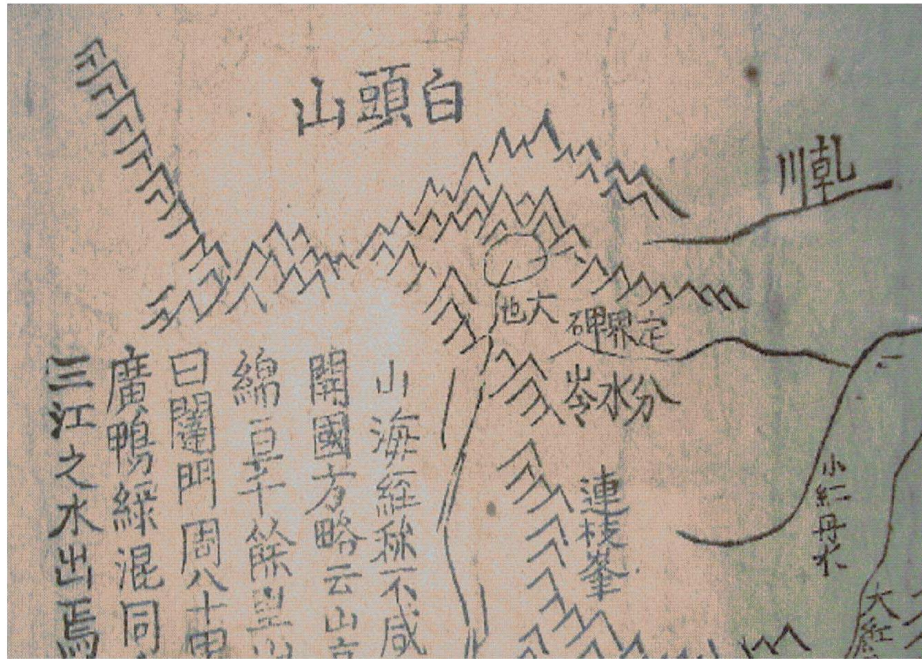 白頭山
乾川
大池
定界碑
分水岺
連枝峯
小紅丹水
大紅
山海經称不咸
開國方略云山高
綿亘千餘里山
曰闥門周八十里
廣鴨綠混同
三江之水出焉